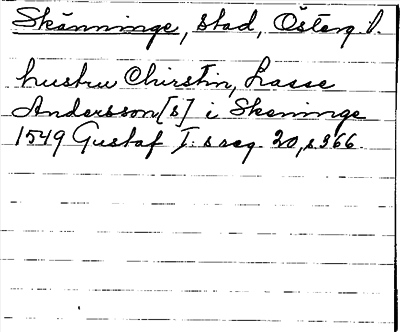 Skänninge, stad, Österg. l.
hustru Chirstin, Lasse
Andersson[s] i Skeninge
1549 Gustaf I:s reg. 20, s. 366.